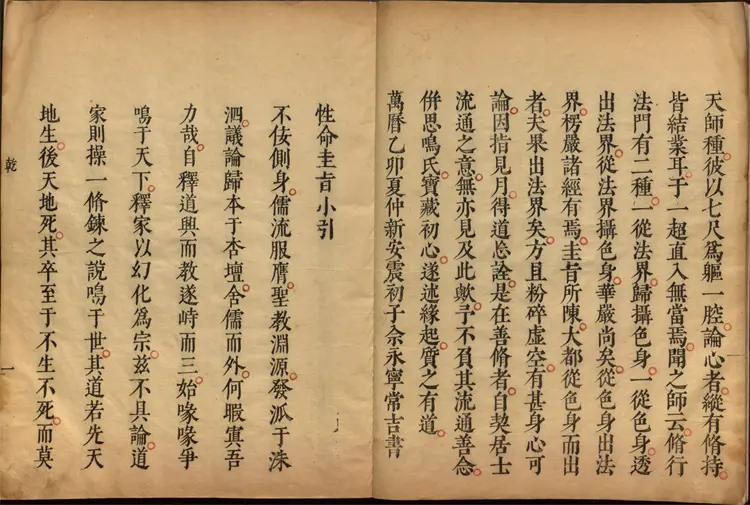 天師種彼以七尺爲軀一腔論心者縱有脩持
皆結業耳于一超直入無當焉聞之師云脩行
法門有二種一從法界歸攝色身一從色身透
出法界從法界攝色身華嚴尚矣從色身出法
界楞嚴諸經有焉圭旨所陳大都從色身而出
者夫果出法界矣方且粉碎虛空有甚身心可
論因指見月得道忩詮是在善脩者自契居士
流通之意無亦見及此歟予不負其流通善念
倂思鳴氏寶藏初心遂述緣起質之有道
萬曆乙卯夏仲新安震初子佘永寧常吉書
性命圭旨小引
不佞側身儒流服膺聖教淵源發泒于洙
泗議論歸本于杏壇舍儒而外何暇寘吾
力哉自釋道興而教遂峙而三始喙喙爭
鳴于天下釋家以幻化爲宗茲不具論道
家則操一脩鍊之說鳴于世其道若先天
地生後天地死其卒至于不生不死而莫
乾
一